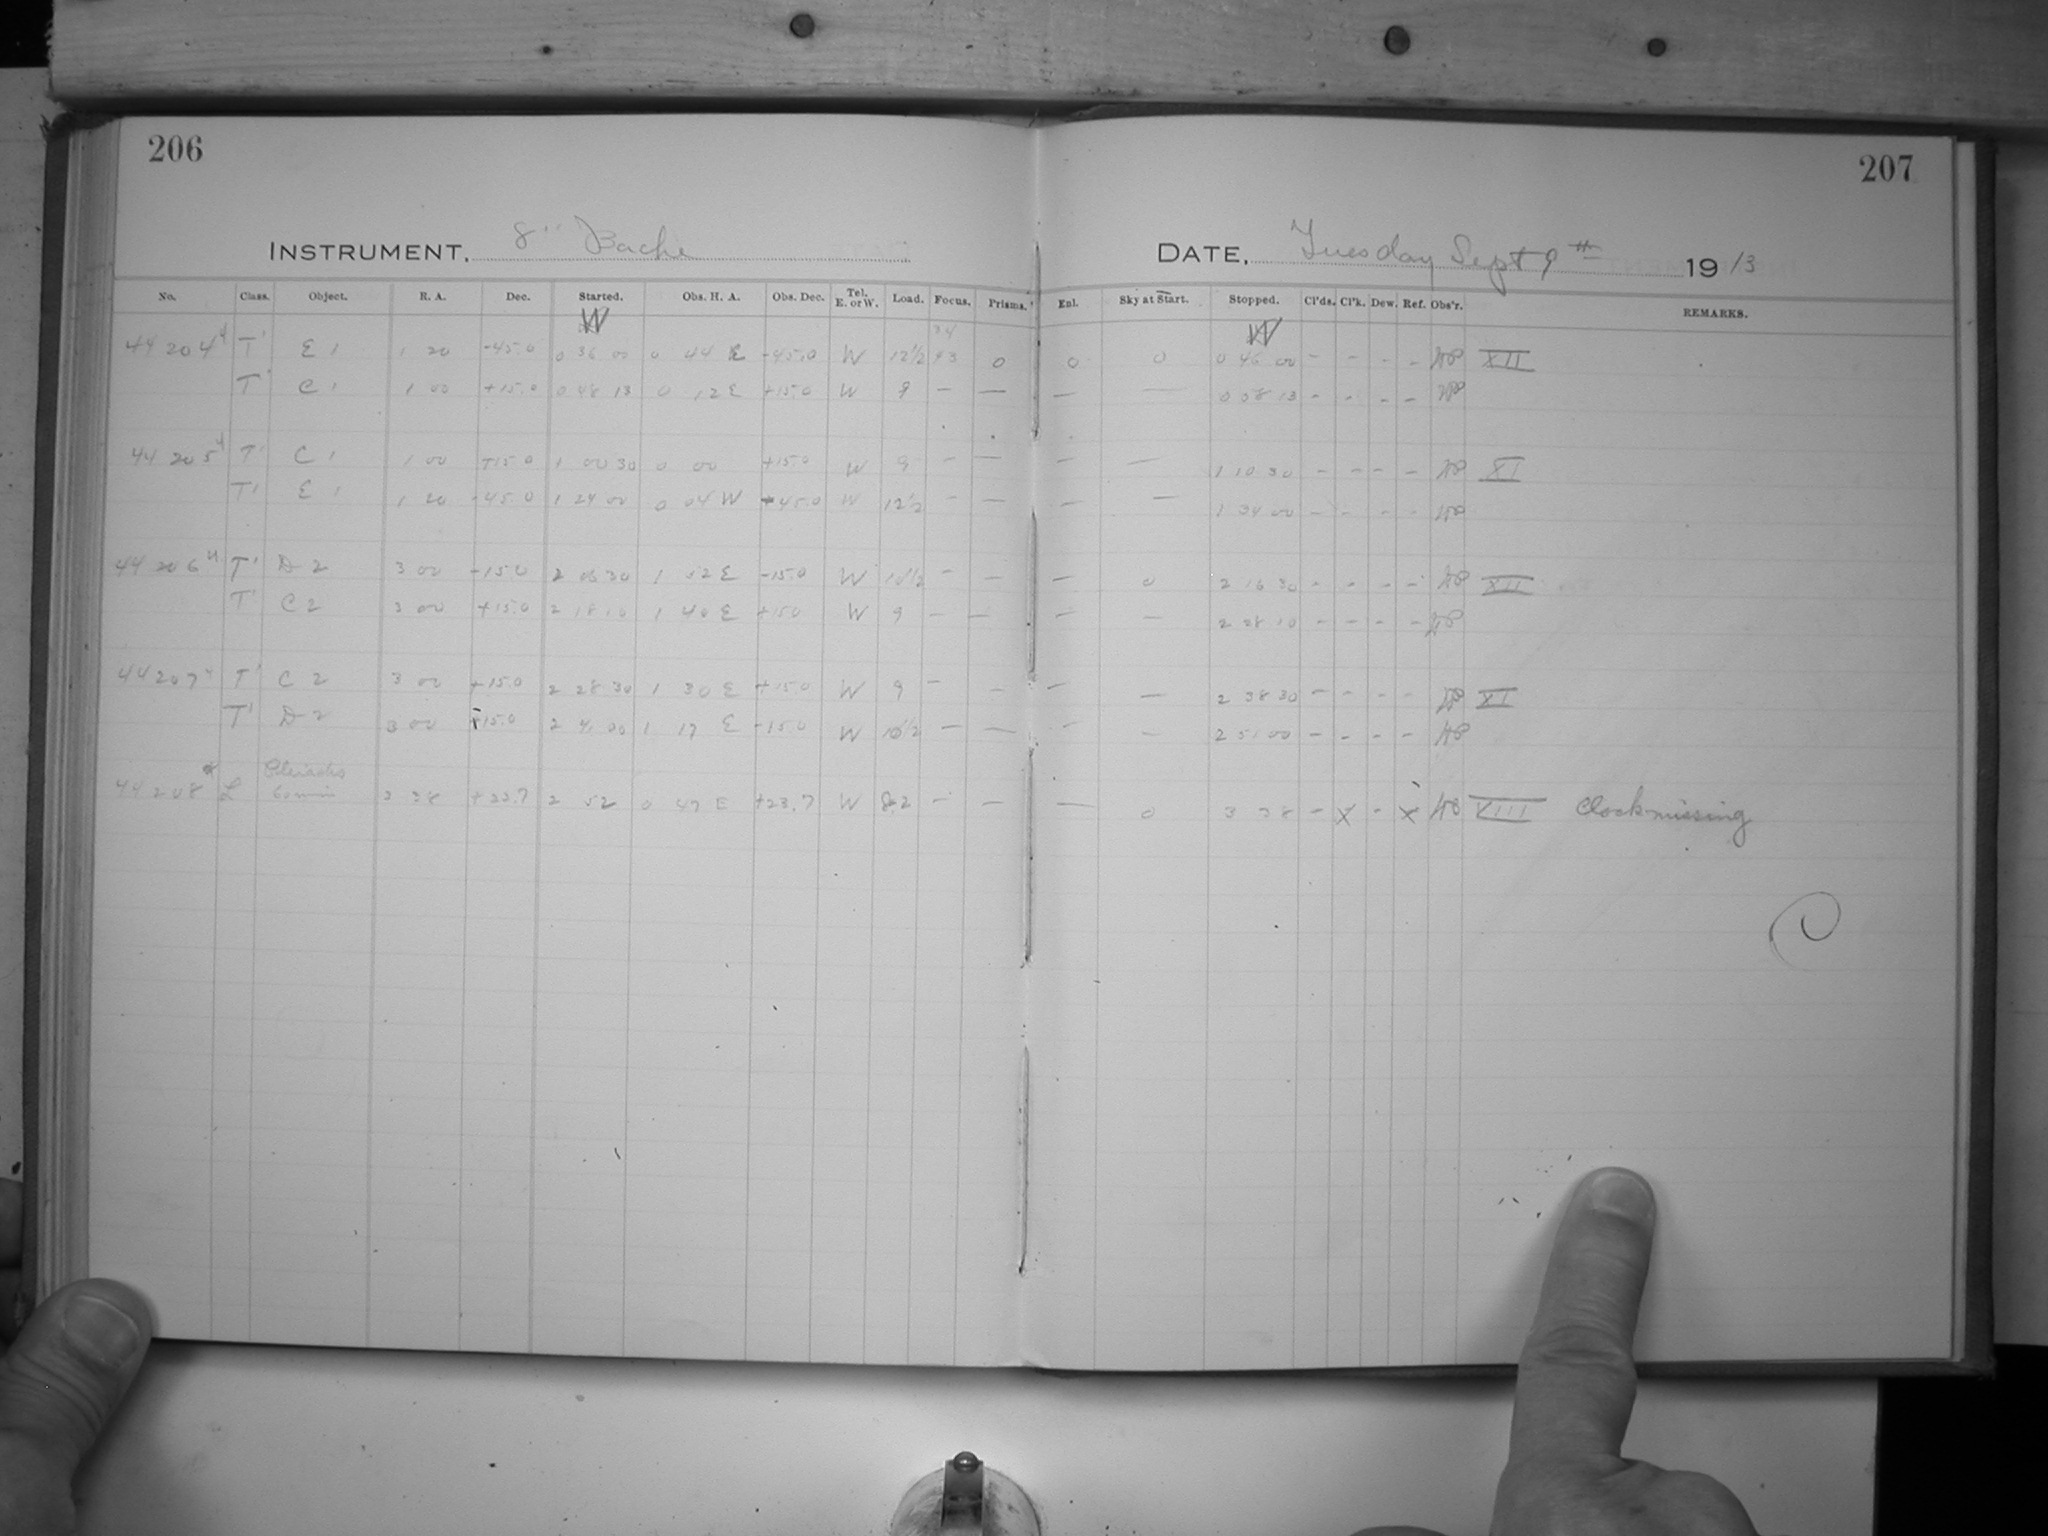 206 207
INSTRUMENT, 8" Bache DATE, Tuesday Sept 9th 1913
No. Class. Object. R. A. Dec. Started. Obs. H. A. Obs. Dec. Tel. E. or W. Load. Focus. Prisms. Enl. Sky at Start. Stopped. Cl'ds. Cl'k. Dew. Ref. Obs'r. REMARKS.
W W
44204 4 T' E 1 1 20 -45.0 0 36 00 0 44 E -45.0 W 12 1/2 93 0 0 0 0 46 00 - - - - XII
T' C 1 1 00 +15.0 0 48 13 0 12 E +15.0 W 9 — — — — 0 58 13 - - - -
44205 4 T' C 1 1 00 +15.0 1 00 30 0 00 +15.0 W 9 — — — — 1 10 30 - - - - XI
T' E 1 1 20 -45.0 1 24 00 0 04 W -45.0 W 12 1/2 - — — — 1 34 00 - - - -
44206 4 T' D 2 3 00 -15.0 2 06 30 1 52 E -15.0 W 10 1/2 - — — 0 2 16 30 - - - - XII
T' C 2 3 00 +15.0 2 18 10 1 40 E +15.0 W 9 — — — — 2 28 10 - - - -
44207 4 T' C 2 3 00 +15.0 2 28 30 1 30 E +15.0 W 9 — — — — 2 38 30 - - - - XI
T' D 2 3 00 -15.0 2 41 00 1 17 E -15.0 W 10 1/2 — — — — 2 51 00 - - - -
Pleiades
44208 L 3 38 +23.7 2 52 0 47 E +23.7 W 8.2 - — — 0 3 38 - X - X XIII Clock missing